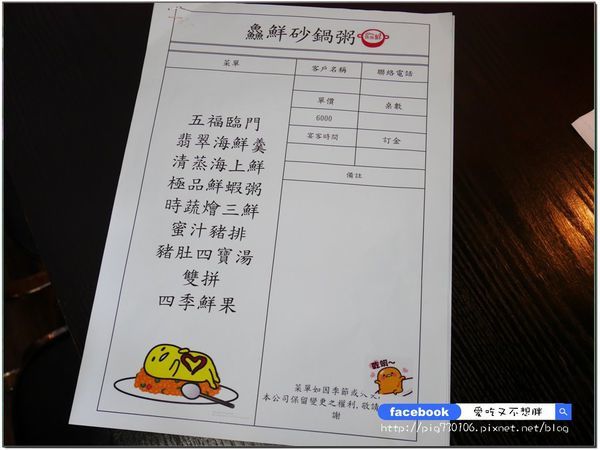 鱻鮮砂鍋粥
菜單
客戶名稱
聯絡電話
單價
桌數
6000
宴客時間
訂金
備註
五福臨門
翡翠海鮮羹
清蒸海上鮮
極品鮮蝦粥
時蔬燴三鮮
蜜汁豬排
豬肚四寶湯
雙拼
四季鮮果
吃飯~
菜單如因季節或
本公司保留變更之權利,敬請
謝
facebook 愛吃又不想胖
http://pig730106.pixnet.net/blog